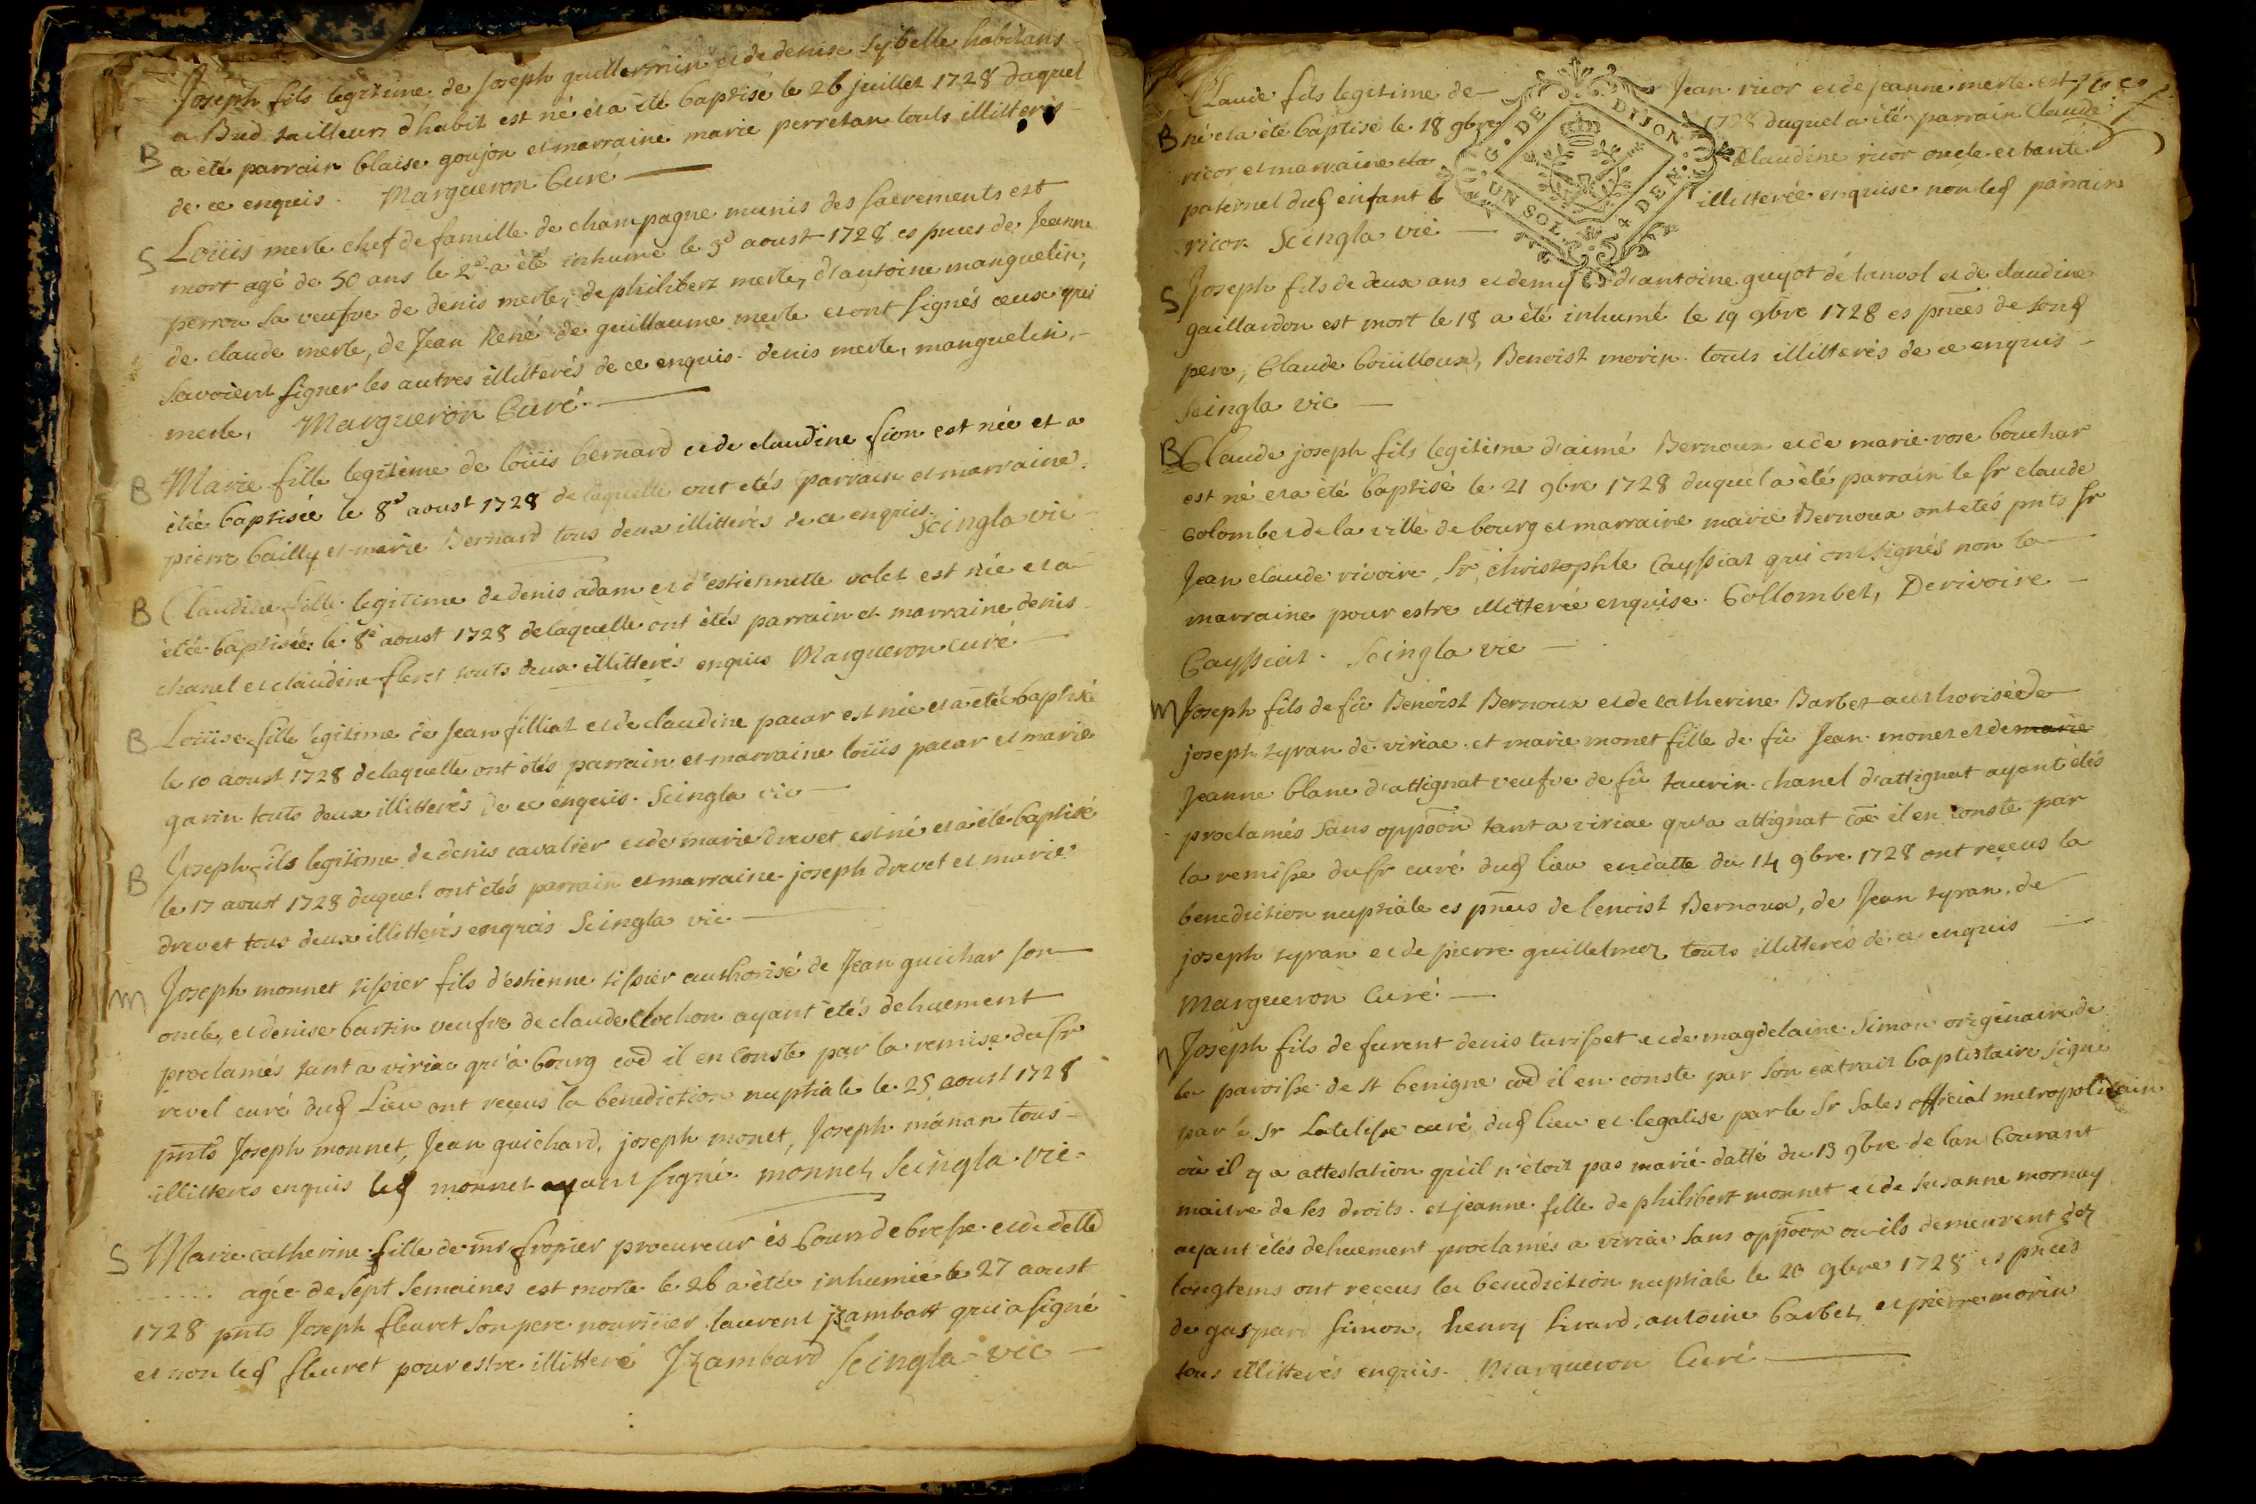 Joseph fils legitime de Joseph guillermin et de denise sybelle habitans
B a Bud tailleur d'habit est né et a été baptisé le 26 juillet 1728 duquel
a été parrain blaise goujon et marraine marie perretan touts illitterés
de ce enquis. Margueron Curé
S Loüis merle chef de famille de champagne munis des sacrements est
mort agé de 50 ans le 2d a été inhumé le 3d aoust 1728 es pnces de Jeanne
perron sa veufve de denis merle, de philibert merle, d'antoine manguelin,
de claude merle, de Jean René de guillaume merle et ont signés ceux qui
savoient signer les autres illitterés de ce enquis. denis merle, manguelin,
merle, Margueron Curé
B Marie fille legitime de loüis bernard et de claudine sion est née et a
étée baptisée le 8d aoust 1728 de laquelle ont etés parrain et marraine
pierre bailly et marie Bernard tous deux illitterés de ce enquis. Seingla vic
B Claudine fille legitime de denis adam et d'estiennette volet est née et a
étée baptisée le 8e aoust 1728 de laquelle ont étés parrain et marraine denis
chanel et claudine fleret touts deux illitterés enquis Margueron curé
B Loüise fille legitime de Jean filliat et de claudine pacar est née et a étée baptisée
le 10 aoust 1728 de laquelle ont étés parrain et marraine loüis pacar et marie
garin touts deux illitterés de ce enquis. Seingla vic
B Joseph fils legitime de denis cavalier et de marie drevet est né et a été baptisé
le 17 aoust 1728 duquel ont étés parrain et marraine joseph drevet et marie
drevet tous deux illitterés enquis Seingla vic
M Joseph monnet tissier fils d'estienne tissier authorisé de Jean guichar son
oncle, et denise bartin veufve de claude clochon ayant étés dehuement
proclamés tant a viriac qu'a bourg coe il en conste par la remise du Sr
revel curé dud Lieu ont reçeus la benediction nuptiale le 25 aoust 1728
pnts Joseph monnet, Jean guichard, joseph monet, Joseph mánan tous
illitterés enquis led monnet ayant signé. monnet, Seingla vic
S Marie catherine fille de mr fropier procureur és Cours de bresse et de delle
....... agée de sept semaines est morte le 26 a étée inhumée le 27 aoust
1728 pnts Joseph fleuret son pere nouricier laurent jzambart qui a signé
et non led fleuret pour estre illitteré Jzambard Seingla vic
Claude fils legitime de Jean ricor et de jeanne merle est
B né et a été baptisé le 18 9bre 1728 duquel a été parrain Claude
ricor et marraine Claudine ricor oncle et tante
paternel dud enfant illitterée enquise non led parrain
ricor Seingla vic
G. DE DIJON
UN SOL 4 DEN.
S Joseph fils de deux ans et demy d'antoine guyot de tanvol et de claudine
gaillardon est mort le 18 a été inhumé le 19 9bre 1728 es pnces de sond
pere, Claude boüilloux, Benoist morin touts illitterés de ce enquis
Seingla vic
B Claude joseph fils legitime d'aimé Bernoux et de marie rose bouchar
est né et a été baptisé le 21 9bre 1728 duquel a été parrain le Sr claude
Colombet de la ville de bourg et marraine marie Bernoux ont etés pnts Sr
Jean claude rivoire, Sr christophle Cayssiat qui ont signés non la
marraine pour estre illitterée enquise. Collombet, Derivoire
Cayssiat. Seingla vic
M Joseph fils de fû Benoist Bernoux et de catherine Barbet authorisé de
joseph tyran de viriac et marie monet fille de fû Jean monet et de marie
Jeanne blanc d'attignat veufve de fû taurin chanel d'attignat ayant étés
proclamés sans oppoon tant a viriac qu'a attignat coe il en conste par
la remisse du Sr curé dud lieu en datte du 14 9bre 1728 ont reçeus la
benediction nuptiale es pnces de benoist Bernoux, de Jean tyran, de
joseph tyran et de pierre guillelmoz touts illitterés de ce enquis
Margueron Curé
Joseph fils de furent denis turisset et de magdelaine Simon originaire de
la paroisse de st benigne coe il en conste par son extrait baptistaire signé
par le Sr Latelisse curé dud lieu et legalisé par le Sr Sales official metropolitain
où il y a attestation qu'il n'étoit pas marié datté du 13 9bre de l'an Courant
maitre de ses droits. et jeanne fille de philibert monnet et de susanne mornay
ayant étés dehuement proclamés a viriac sans oppoon où ils demeurent dez
longtems ont reçeus la benediction nuptiale le 28 9bre 1728 es pnces
de gaspard simon, henry Livard, antoine barbet, et pierre morin
tous illitterés enquis. Margueron Curé